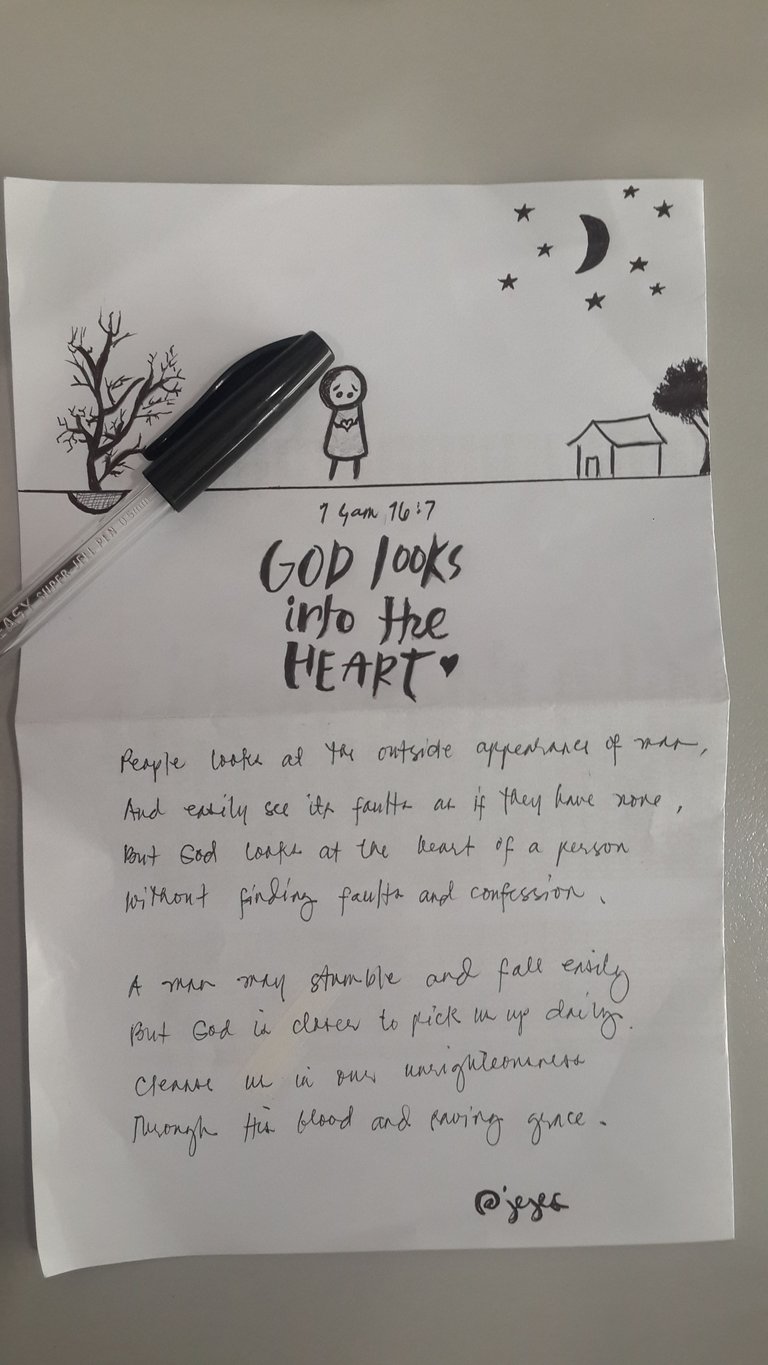 EASY SUPER JELL PEN 0.5mm
1 Sam 16:7
GOD looks
into the
HEART
People looks at the outside appearance of man,
And easily see its faults as if they have none,
But God looks at the heart of a person
Without finding faults and confession.
A man may stumble and fall easily
But God is closer to pick us up daily.
Cleanse us in our unrighteousness
Through His blood and saving grace.